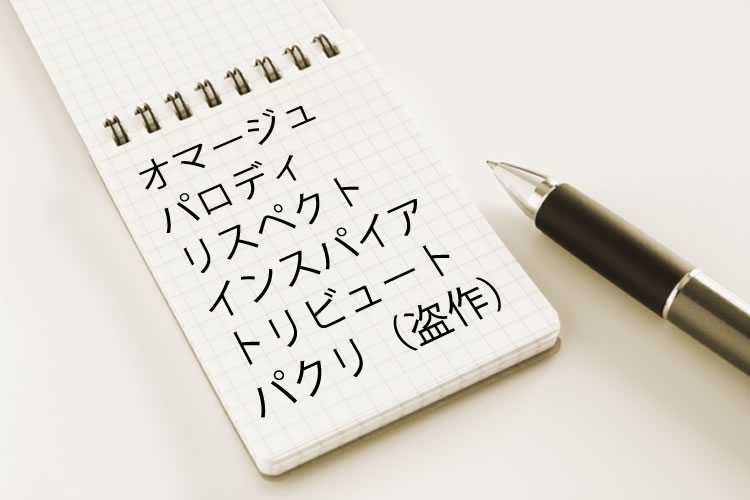 オマージュ
パロディ
リスペクト
インスパイア
トリビュート
パクリ（盗作）